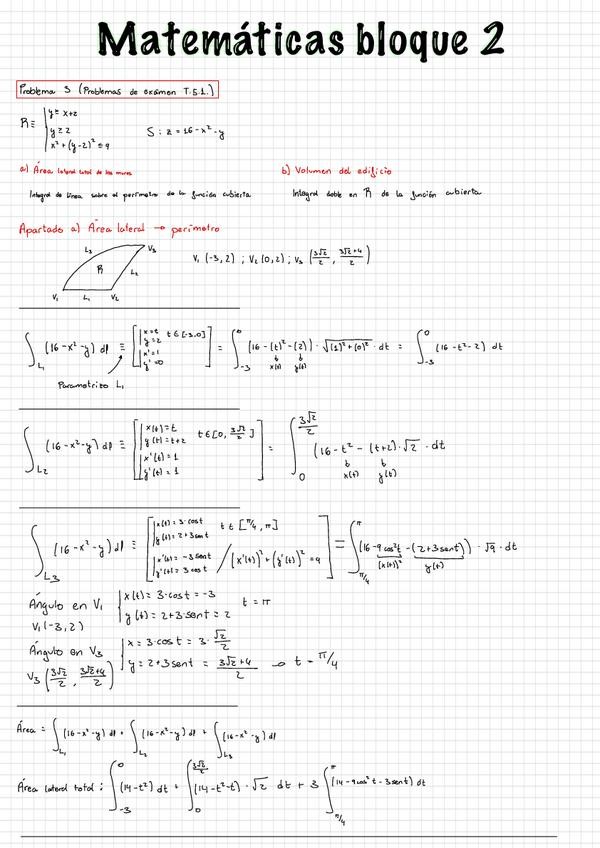 Matemáticas bloque 2
Problema 3 (Problemas de exámen T.5.1.)
R ≡ { y ≥ x+2
y ≥ 2
x² + (y-2)² ≤ 9
S : z = 16 - x² - y
a) Área lateral total de los muros
b) Volumen del edificio
Integral de línea sobre el perímetro de la función cubierta
Integral doble en R de la función cubierta
Apartado a) Área lateral → perímetro
L₃ V₃
R L₂
V₁ L₁ V₂
V₁ (-3, 2) ; V₂ (0, 2) ; V₃ (3√2/2 , 3√2+4/2)
∫_L₁ (16-x²-y) dl ≡ [ x=t t∈[-3,0] y=2 x'=1 y'=0 ] = ∫_-3^0 (16 - (t)² - (2)) · √(1)²+(0)² · dt = ∫_-3^0 (16-t²-2) dt
x(t) y(t)
Parametrizo L₁
∫_L₂ (16-x²-y) dl ≡ [ x(t)=t y(t)=t+2 t∈[0, 3√2/2] x'(t)=1 y'(t)=1 ] = ∫_0^3√2/2 (16 - t² - (t+2) · √2 · dt
x(t) y(t)
∫_L₃ (16-x²-y) dl ≡ [ x(t)=3·cost y(t)=2+3sent t∈[π/4, π] x'(t)=-3sent y'(t)=3cost / (x'(t))²+(y'(t))²=9 ] = ∫_π/4^π (16-9cos²t-(2+3sent)) · √9 · dt
(x(t))² y(t)
Ángulo en V₁ { x(t) = 3·cost = -3
V₁(-3,2) y(t) = 2+3·sent = 2 t = π
Ángulo en V₃ { x = 3·cost = 3·√2/2
V₃ (3√2/2 , 3√2+4/2) y = 2+3sent = 3√2+4/2 → t = π/4
Área = ∫_L₁ (16-x²-y) dl + ∫_L₂ (16-x²-y) dl + ∫_L₃ (16-x²-y) dl
Área lateral total : ∫_-3^0 (14-t²) dt + ∫_0^3√2/2 (14-t²-t) · √2 dt + 3 ∫_π/4^π (14-9cos²t-3sent) dt